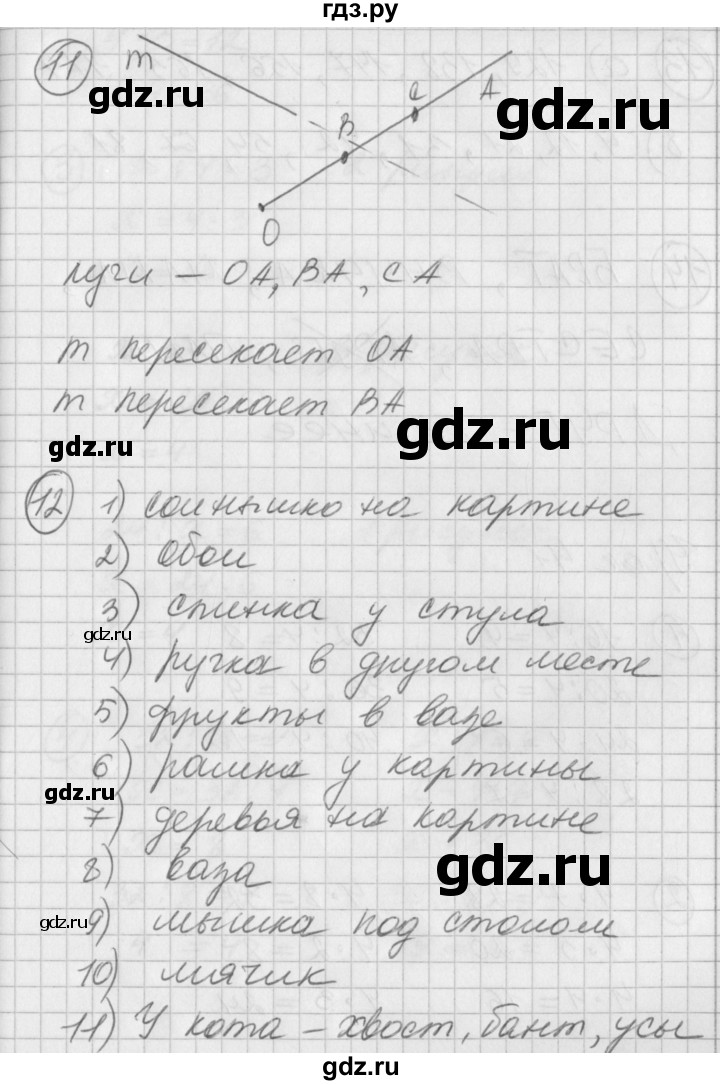 гдз.ру
11
m
C
A
B
O
лучи — OA, BA, CA
m пересекает OA
m пересекает BA
12 1) солнышко на картине
2) обои
3) спинка у стула
4) ручка в другом месте
5) фрукты в вазе
6) рамка у картины
7) деревья на картине
8) ваза
9) мышка под столом
10) мячик
11) У кота – хвост, бант, усы
gdz.ru
gdz.ru
gdz.ru
gdz.ru
gdz.ru
gdz.ru
gdz.ru
gdz.ru
gdz.ru
gdz.ru